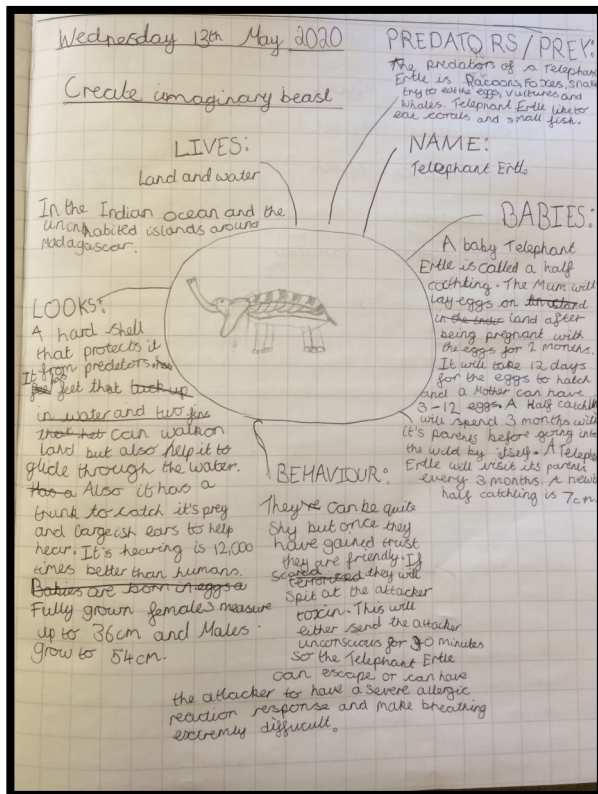 Wednesday 13th May 2020
Create imaginary beast
PREDATORS/PREY:
The predators of a Telephant
Ertle is Racoons, Foxes, Snake
try to eat the eggs, Vultures and
Whales. Telephant Ertle like to
eat corals and small fish.
LIVES:
Land and water
In the Indian ocean and the
uninhabited islands around
Madagascar.
NAME:
Telephant Ertle
BABIES:
A baby Telephant
Ertle is called a half
catchling. The Mum will
lay eggs on
in the land after
being pregnant with
the eggs for 2 months.
It will take 12 days
for the eggs to hatch
and a Mother can have
3-12 eggs. A Half catchli
will spend 3 months with
it's parents before going into
the wild by itself. A Teleph
Ertle will visit its parents
every 3 months. A newb
half catchling is 7cm.
LOOKS:
A hard shell
that protects it
from predators. has
It has feet that back up
in water and two fins
that hat can walk on
land but also help it to
glide through the water.
Has a Also it has a
trunk to catch it's prey
and largeish ears to help
hear. It's hearing is 12,000
times better than humans.
Babies are born in eggs a
Fully grown females measure
up to 36cm and Males
grow to 54cm.
BEHAVIOUR:
They're can be quite
shy but once they
have gained trust
they are friendly. If
scared terrorised they will
spit at the attacker
toxin. This will
either send the attacker
unconscious for 30 minutes
so the Telephant Ertle
can escape or can have
the attacker to have a severe allergic
reaction response and make breathing
extremly difficult.